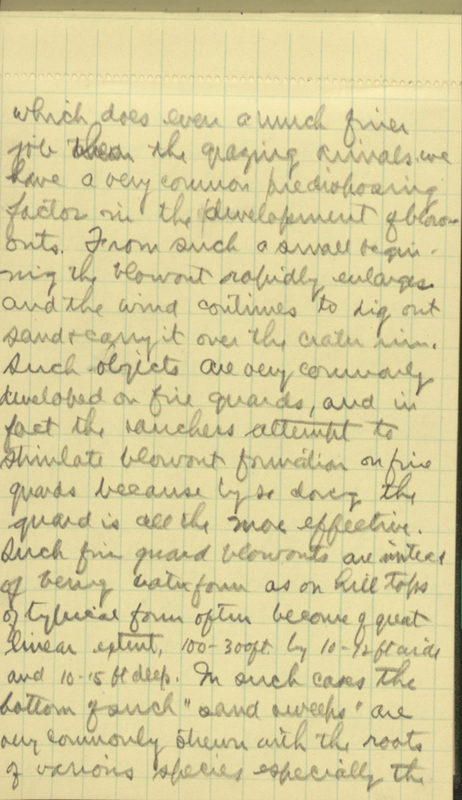 which does even a much finer
job than the grazing animals we
have a very common predisposing
factor in the development of blow-
outs. From such a small begin-
ning the blowout rapidly enlarges
and the wind continues to dig out
sand & carry it over the crater rim.
Such objects are very commonly
developed on fire guards, and in
fact the ranchers attempt to
stimulate blowout formation on fire
guards because by so doing the
guard is all the more effective.
Such fire guard blowouts are instead
of being crater form as on hill tops
of typical form often become of great
linear extent, 100-300ft. by 10-12 ft wide
and 10-15 ft deep. In such cases the
bottom of such "sand sweeps" are
very commonly strewn with the roots
of various species especially the